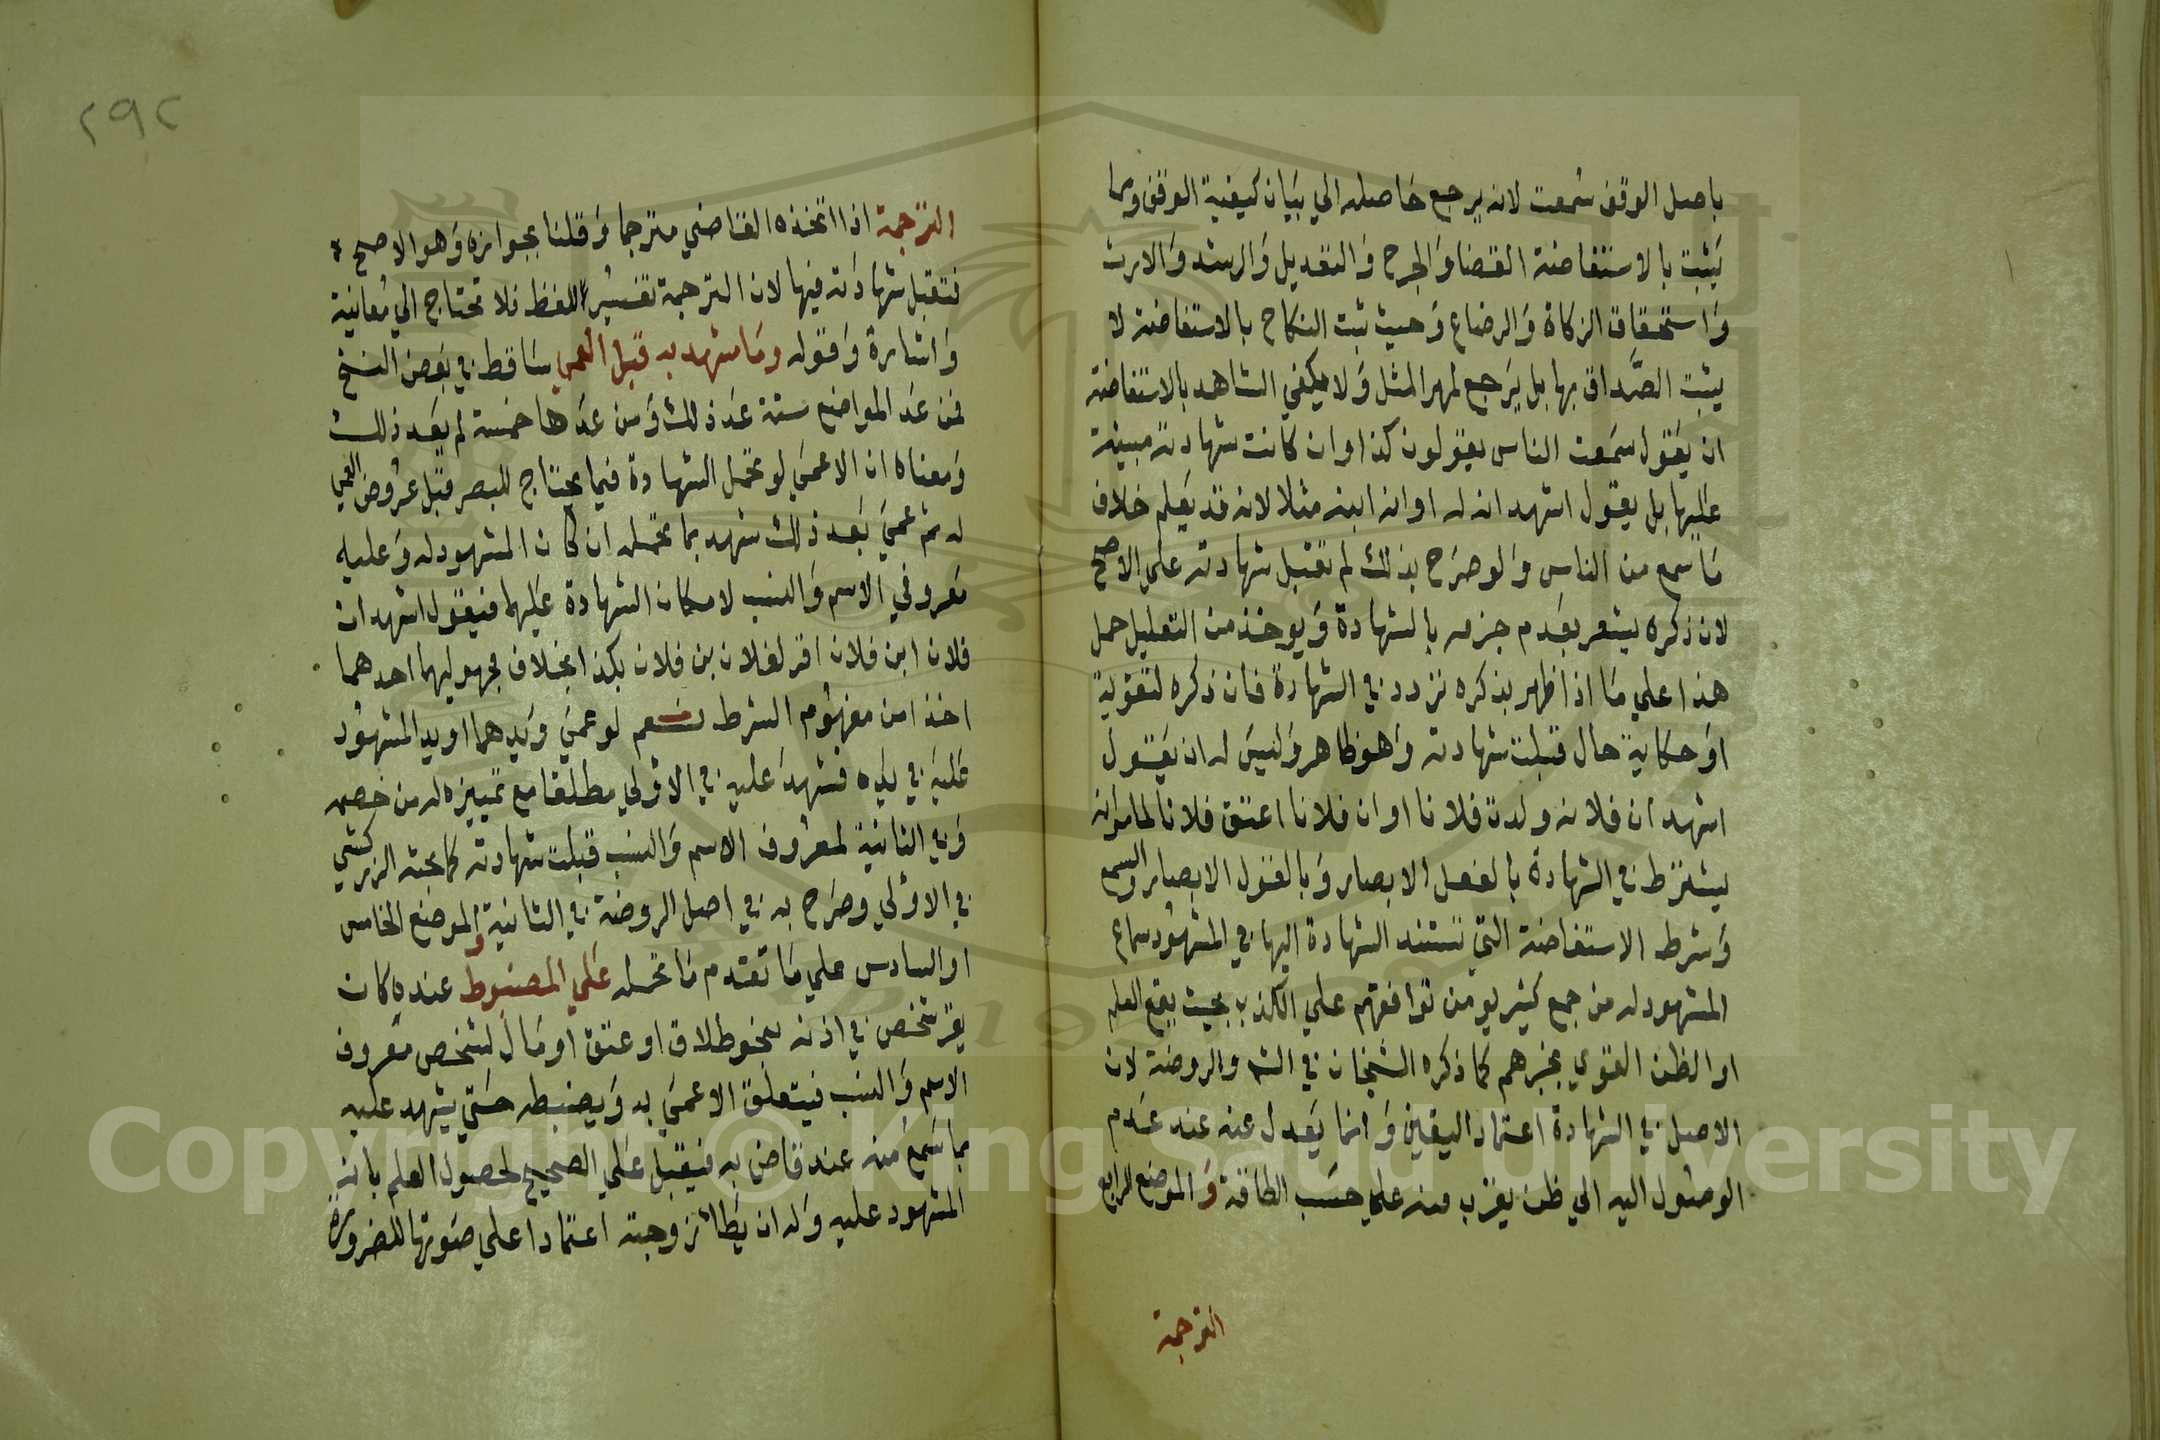 باصل الوقف سمعت لانه يرجع حاصله الي بيان كيفية الوقف ومما
يثبت بالاستفاضة القضا والجرح والتعديل والرشد والارث
واستحقاق الزكاة والرضاع وحيث ثبت النكاح بالاستفاضة لا
يثبت الصداق بها بل يرجع لمهر المثل ولا يكفي الشاهد بالاستفاضة
ان يقول سمعت الناس يقولون كذا وان كانت شهادته مبنية
عليها بل يقول اشهد انه له او انه ابنه مثلا لانه قد يعلم خلاف
ما سمع من الناس ولو صرح بذلك لم تقبل شهادته علي الاصح
لان ذكره يشعر بعدم جزمه بالشهادة ويوخذ من التعليل حمل
هذا علي ما اذا ظهر بذكره تردد في الشهادة فان ذكره لتقوية
او حكاية حال قبلت شهادته وهو ظاهر وليس له ان يقول
اشهد ان فلانه ولدت فلانا او ان فلانا اعتق فلانا لما مر انه
يشترط في الشهادة بالفعل الابصار وبالقول الابصار والسمع
وشرط الاستفاضة التي تستند الشهادة اليها في المشهود سماع
المشهود له من جمع كثير يومن توافقهم علي الكذب بحيث يقع العلم
او الظن القوي بخبرهم كما ذكره الشيخان في الشر والروضة لان
الاصل في الشهادة اعتماد اليقين وانما يعدل عنه عند عدم
الوصول اليه الي ظن يقرب منه علي حسب الطاقة و الموضع الرابع
الترجمة
٢٩٢
الترجمة اذا اتخذه القاضي مترجما وقلنا بجوازه وهو الاصح
فتقبل شهادته فيها لان الترجمة تفسير اللفظ فلا تحتاج الي معاينة
واشارة وقوله وما شهد به قبل العمي ساقط في بعض النسخ
فمن عد المواضع ستة عد ذلك ومن عدها خمسة لم يعد ذلك
ومعناه ان الاعمي لو تحمل الشهادة فيما يحتاج للبصر قبل عروض العمي
له ثم عمي بعد ذلك شهد بما تحمله ان كان المشهود له وعليه
معروفي الاسم والنسب لامكان الشهادة عليهما فيقول اشهد ان
فلان ابن فلان اقر لفلان بن فلان بكذا بخلاف مجهوليهما احدهما
اخذا من مفهوم الشرط نعم لو عمي ويدهما او يد المشهود
عليه في يده فشهد عليه في الاولي مطلقا مع تمييزه له من خصمه
وفي الثانية لمعروف الاسم والنسب قبلت شهادته كما بحثه الزركشي
في الاولي وصرح به في اصل الروضة في الثانية و الموضع الخامس
او السادس علي ما تقدم ما تحمله علي المضبوط عنده كان
يقر شخص في اذنه بنحو طلاق او عتق او مال لشخص معروف
الاسم والنسب فيتعلق الاعمي به ويضبطه حتي يشهد عليه
بما سمع منه عند قاض به فيقبل علي الصحيح لحصول العلم بانه
المشهود عليه وله ان يطا زوجته اعتمادا علي صوتها للضرورة
Copyright © King Saud University